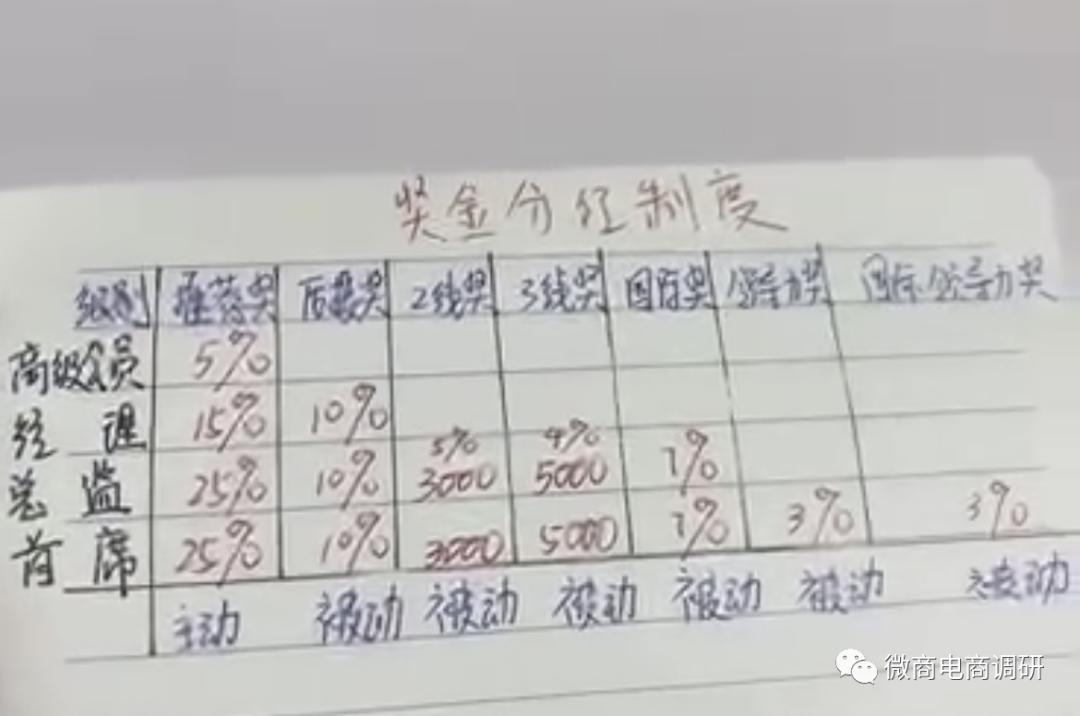 奖金分红制度
级别 推荐奖 质量奖 2线奖 3线奖 领导力奖 国际领导力奖
高级会员 5%
经理 15% 10%
5% 4%
总监 25% 10% 3000 5000 1%
首席 25% 10% 3000 5000 1% 3% 3%
主动 被动 被动 被动 被动 被动 被动
微商电商调研